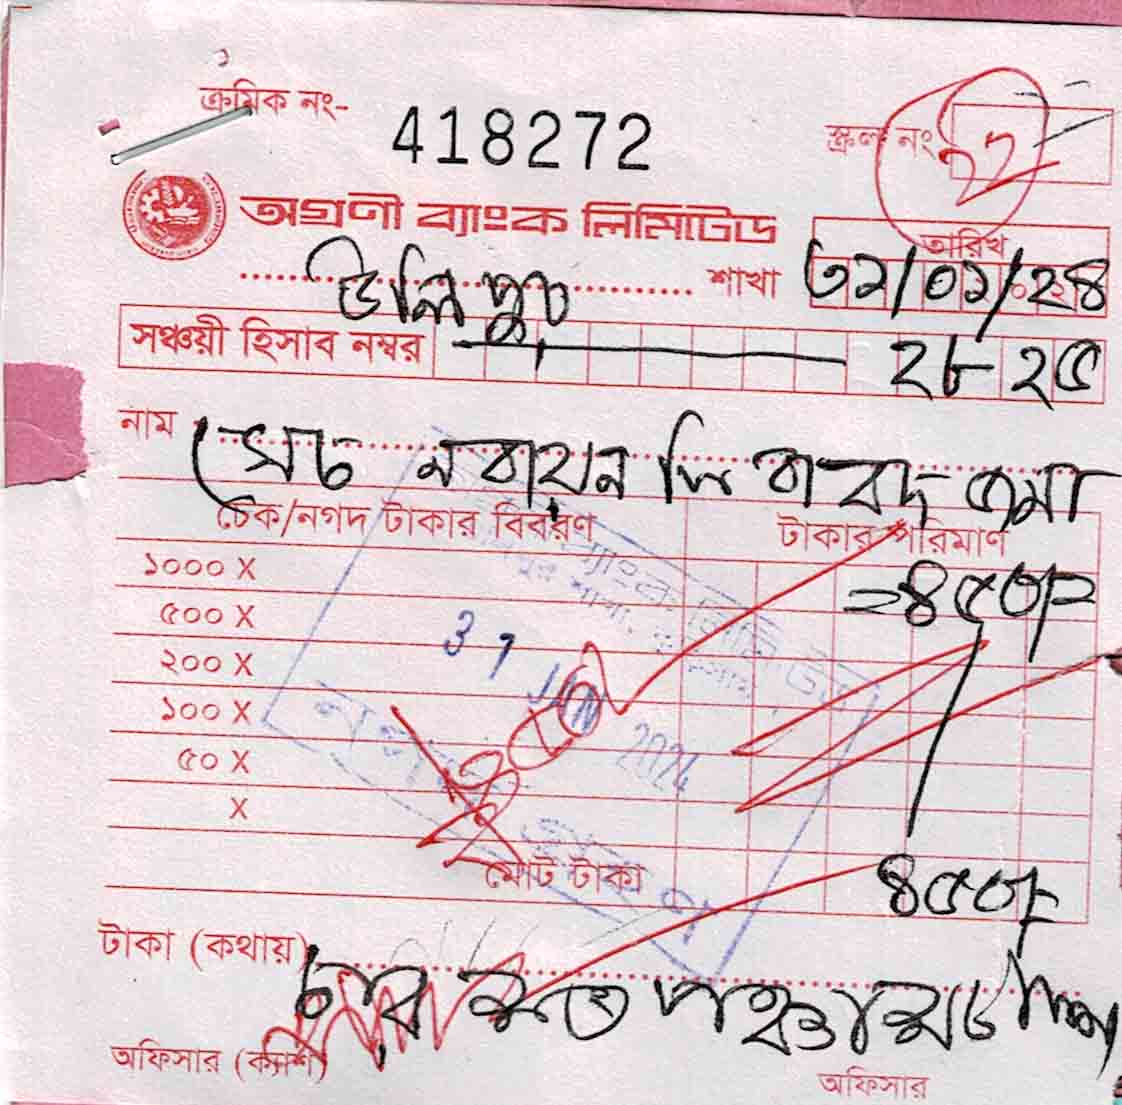 ক্রমিক নং- 418272
স্ক্রল নং ২২
অগ্রণী ব্যাংক লিমিটেড
তারিখ
উলিপুর শাখা ৩১/০১/২৪
সঞ্চয়ী হিসাব নম্বর ২৮২৫
নাম সেচ নবায়ন ফি বাবদ জমা
চেক/নগদ টাকার বিবরণ টাকার পরিমাণ
১০০০ X =৪৫০/=
৫০০ X
২০০ X
31 JAN 2024
১০০ X
৫০ X
X
মোট টাকা ৪৫০/-
টাকা (কথায়)
চার শত পঞ্চাশ
অফিসার (ক্যাশ)
অফিসার